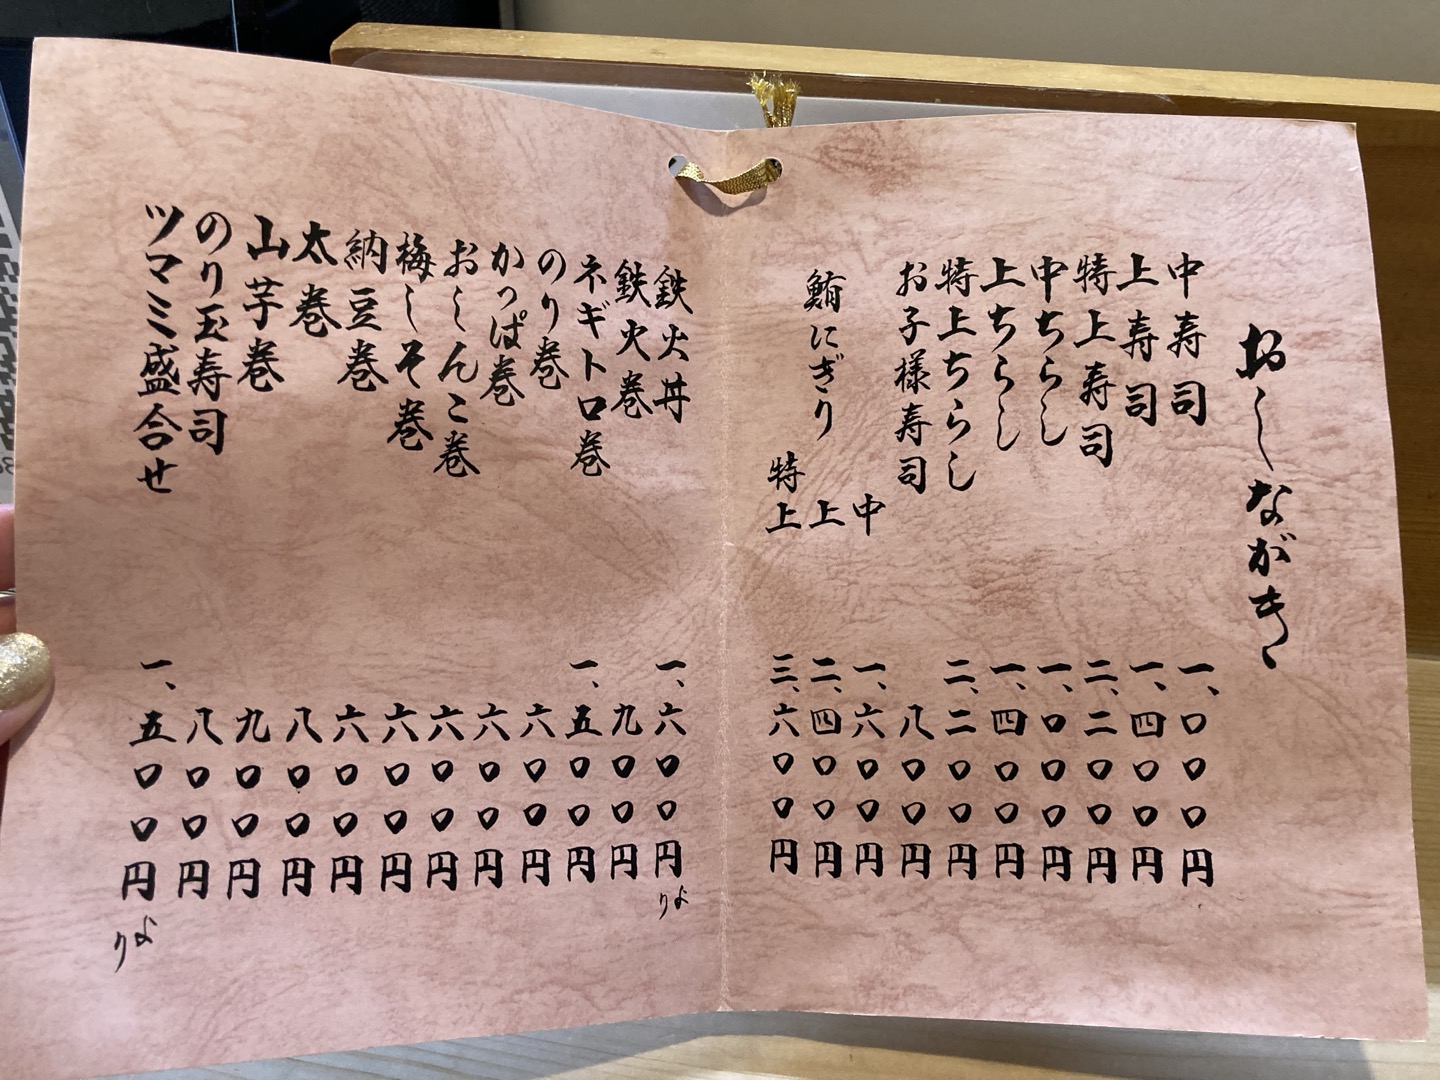 おしながき
中寿司 一、〇〇〇円
上寿司 一、四〇〇円
特上寿司 二、二〇〇円
中ちらし 一、〇〇〇円
上ちらし 一、四〇〇円
特上ちらし 二、二〇〇円
お子様寿司 八〇〇円
中 一、六〇〇円
鮪にぎり 上 二、四〇〇円
特上 三、六〇〇円
鉄火丼 一、六〇〇円より
鉄火巻 九〇〇円
ネギトロ巻 一、五〇〇円
のり巻 六〇〇円
かっぱ巻 六〇〇円
おしんこ巻 六〇〇円
梅しそ巻 六〇〇円
納豆巻 六〇〇円
太巻 八〇〇円
山芋巻 九〇〇円
のり玉寿司 八〇〇円
ツマミ盛合せ 一、五〇〇円より